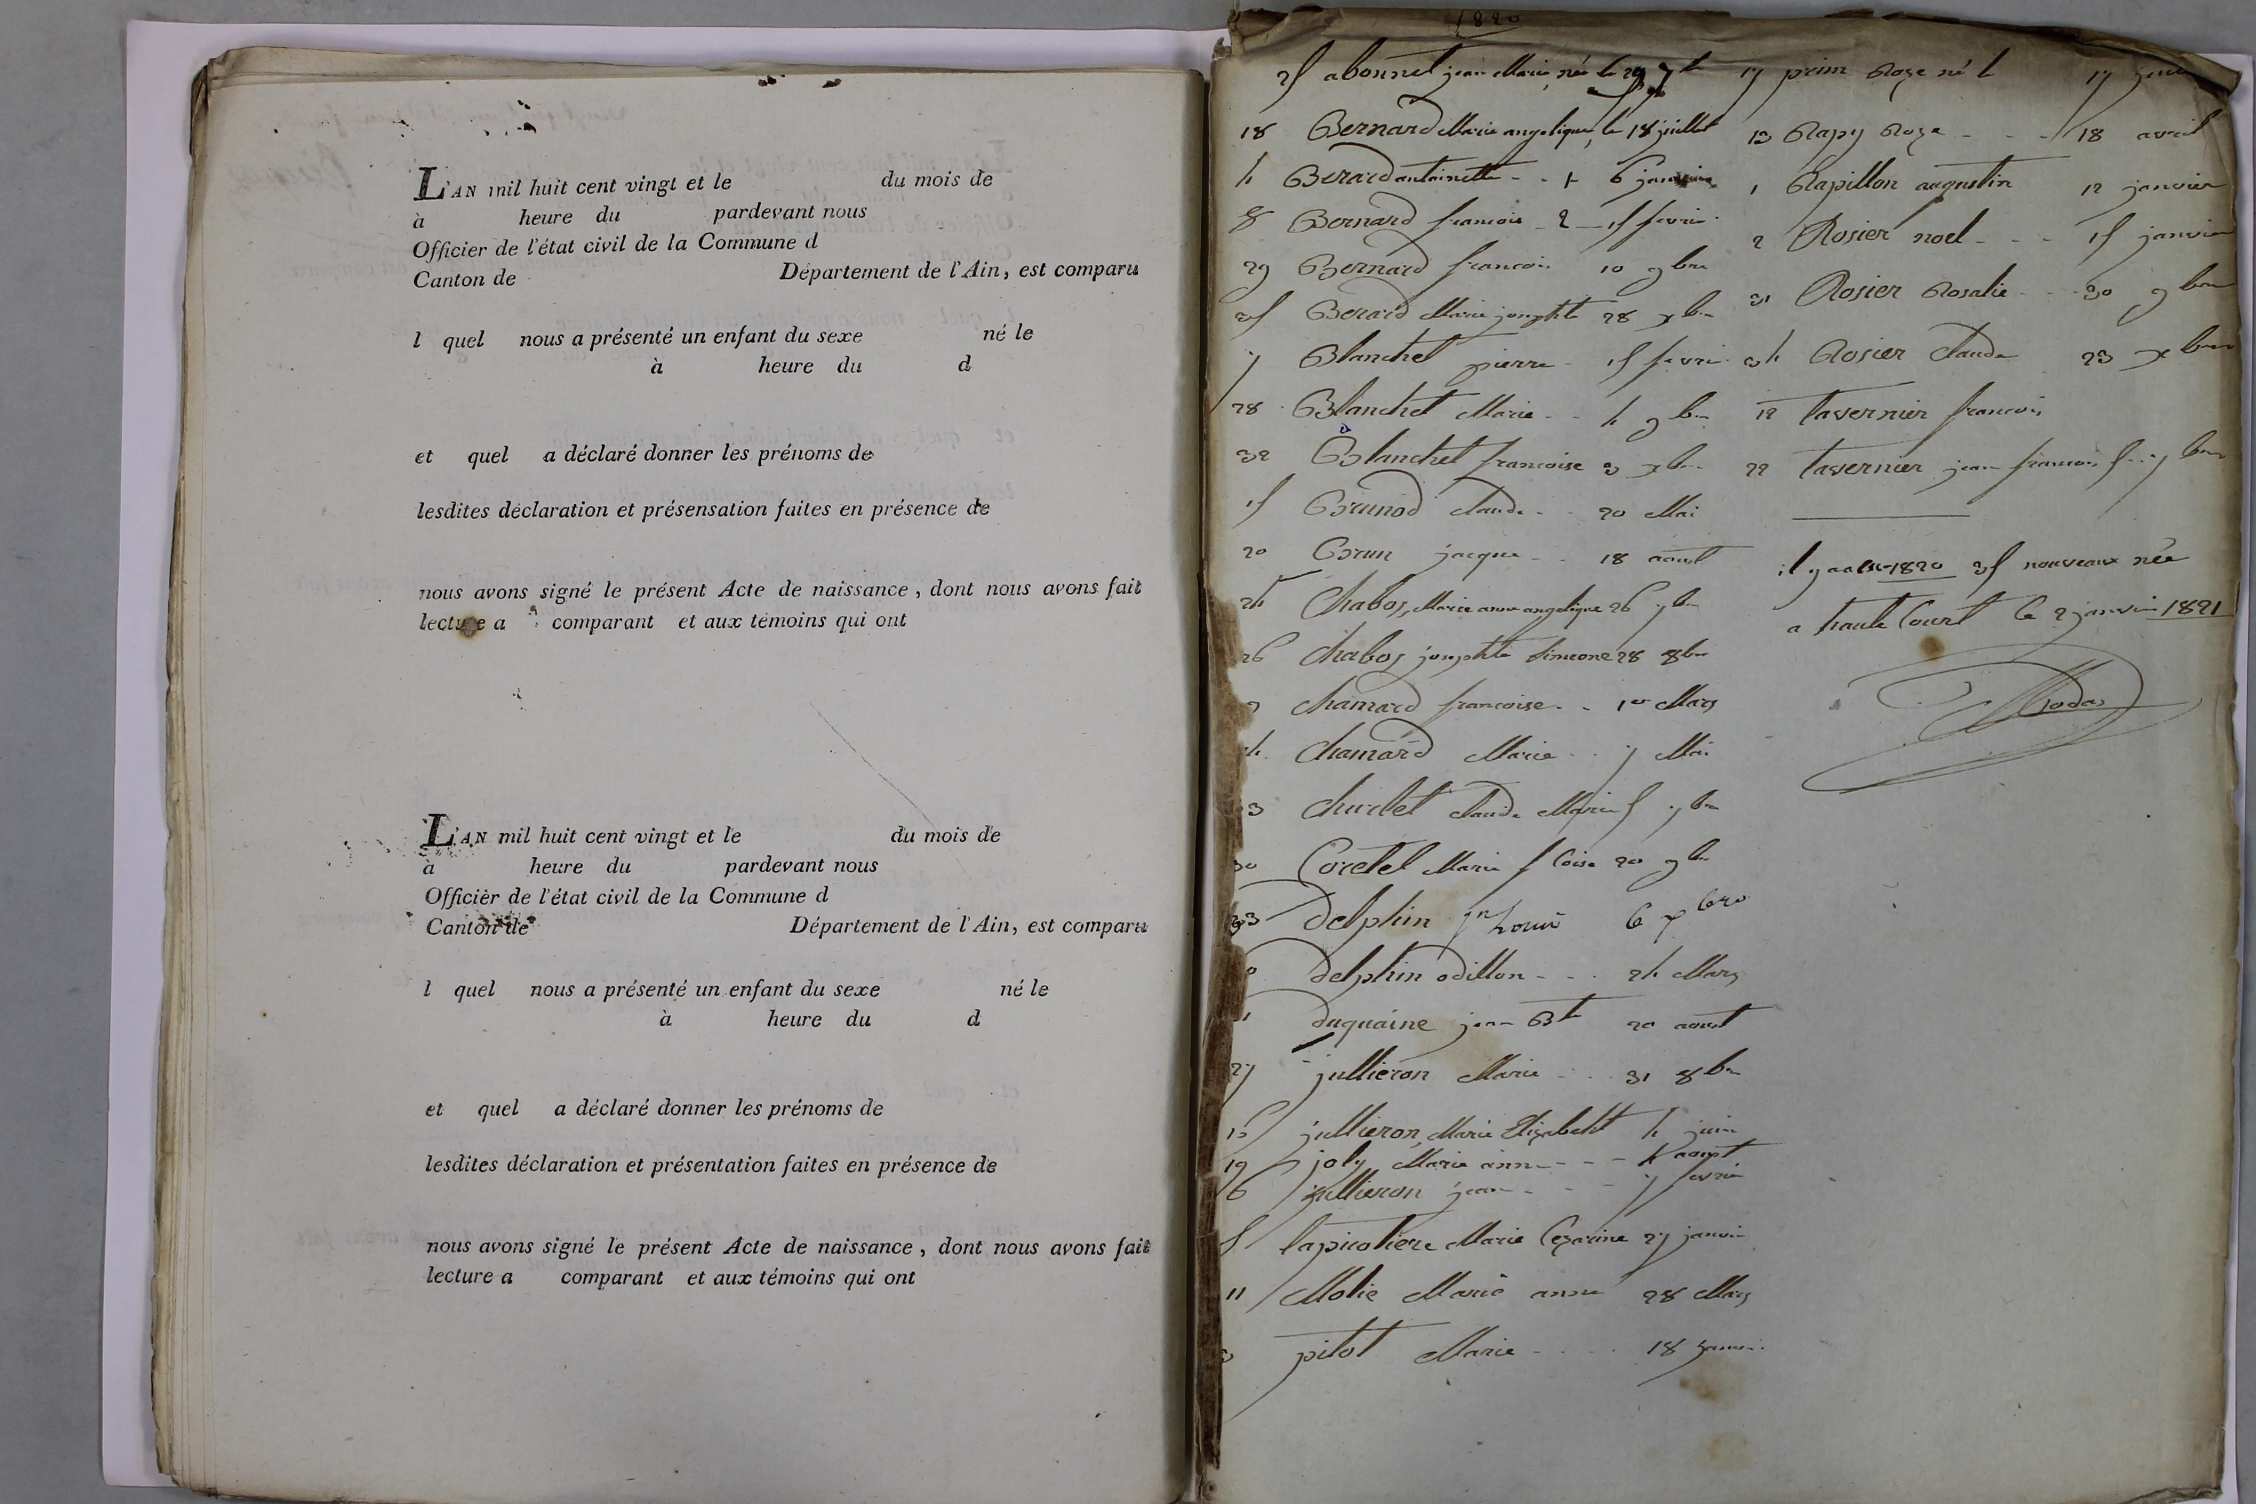 L'AN mil huit cent vingt et le du mois de
à heure du pardevant nous
Officier de l'état civil de la Commune d
Canton de Département de l'Ain, est comparu
l quel nous a présenté un enfant du sexe né le
à heure du d
et quel a déclaré donner les prénoms de
lesdites déclaration et présensation faites en présence de
nous avons signé le présent Acte de naissance, dont nous avons fait
lecture a comparant et aux témoins qui ont
L'AN mil huit cent vingt et le du mois de
à heure du pardevant nous
Officier de l'état civil de la Commune d
Canton de Département de l'Ain, est comparu
l quel nous a présenté un enfant du sexe né le
à heure du d
et quel a déclaré donner les prénoms de
lesdites déclaration et présentation faites en présence de
nous avons signé le présent Acte de naissance, dont nous avons fait
lecture a comparant et aux témoins qui ont
1820
25 abonnel jean Marie né le 29 7bre
18 Bernard Marie angelique, le 18 juillet
4 Berard antoinette 6 janvier
8 Bernard francois 15 fevrier
29 Bernard francois 10 9bre
35 Berard Marie josephte 28 xbre
7 Blanchet pierre 15 fevrier
28 Blanchet Marie 4 9bre
32 Blanchet francoise 3 xbre
15 Brunod Claude 20 Mai
20 Brun jacque 18 aoust
24 Chaboz Marie anne angelique 26 7bre
26 Chaboz josephte Simeone 28 8bre
9 Chamard francoise 1er Mars
14 Chamard Marie 7 Mai
23 Churlet Claude Marie 5 7bre
30 Coretel Marie fcoise 20 9bre
33 Delphin jn Louis 6 xbre
10 Delphin odillon 24 Mars
21 Duquaine jean Bte 20 aoust
27 jullieron Marie 31 8bre
16 jullieron Marie Elizabeht 4 juin
19 joly Marie anne aoust
6 jullieron jean 7 fevrier
5 lapicotiere Marie Cezarine 27 janvier
11 Molie Marie anne 28 Mars
3 pitot Marie 18 janvier
17 prim Roze né l 17 juin
13 Rapy Roze 18 avril
1 Rapillon augustin 12 janvier
2 Rosier noel 15 janvier
31 Rosier Rosalie 30 9bre
34 Rosier Claude 23 xbre
12 tavernier francois
22 tavernier jean francois 5 7bre
il y a en 1820 35 nouveaux née
a haute Court le 2 janvier 1821